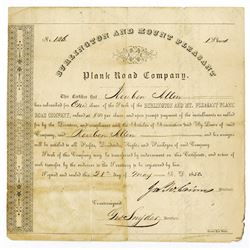 No. 126
BURLINGTON AND MOUNT PLEASANT
Plank Road Company.
This Certifies that Reuben Allen
has subscribed for One share of the Stock of the BURLINGTON AND MT. PLEASANT PLANK
ROAD COMPANY, valued at $50 per share and upon prompt payment of the installments as called
for by the Directors, and compliance with the Articles of Association and By Laws of said
Company, said Reuben Allen
will be entitled to the Profits, Dividends, Rights and Privileges of said Company.
Stock of this Company may be transferred by indorsement on this Certificate, and notice
of such transfer by the indorser to the Secretary to be
Signed and sealed this 21st day of May A. D. 1850.
Countersigned
Geo. Snyder